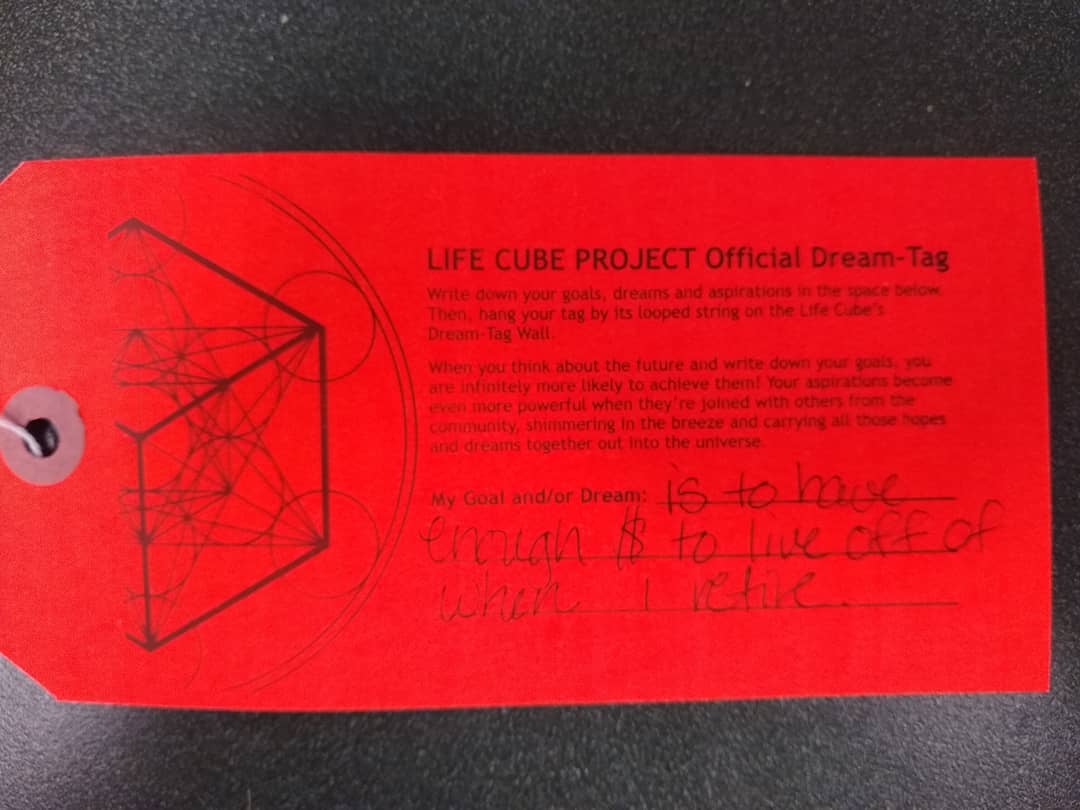 LIFE CUBE PROJECT Official Dream-Tag
Write down your goals, dreams and aspirations in the space below.
Then, hang your tag by its looped string on the Life Cube's
Dream-Tag Wall.
When you think about the future and write down your goals, you
are infinitely more likely to achieve them! Your aspirations become
even more powerful when they're joined with others from the
community, shimmering in the breeze and carrying all those hopes
and dreams together out into the universe.
My Goal and/or Dream: is to have
enough $ to live off of
when I retire.